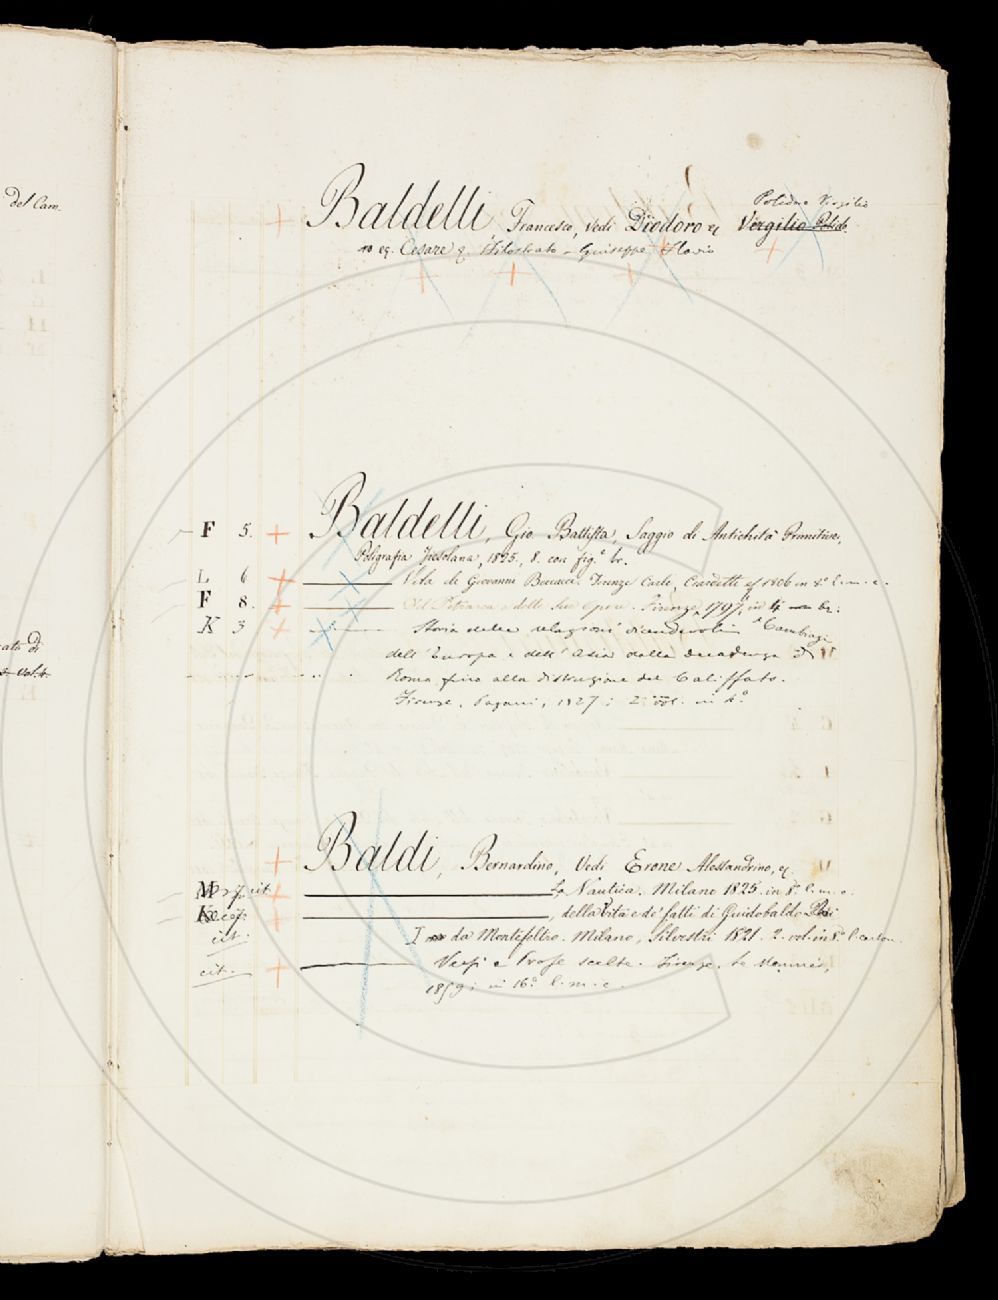 del Cam.
Polidoro Virgilio
Baldelli, Francesco, vedi Diodoro e Virgilio Polid.
Cesare e Filostrato e Giuseppe Flavio
F 5. Baldelli, Gio. Battista, Saggio di Antichità Primitive,
Poligrafia Fiesolana, 1825, 8. con fig.e br.
L 6 Vita di Giovanni Boccacci. Firenze Carli, Ciardetti 1806 in 8.o l. m. e.
F 8. Del Petrarca e delle sue opere. Firenze, 1797, in 4 br:
K 3 Storia delle relazioni vicendevoli
dell'Europa e dell'Asia dalla decadenza di
Roma fino alla distruzione del Califfato.
Firenze, Pagani, 1827; 2 vol. in 4.o
Baldi, Bernardino, Vedi Erone Alessandrino, e
M cit La Nautica. Milano 1825. in 8.o l. m. e.
K , della Vita e de' fatti di Guidobaldo
cit. I da Montefeltro. Milano, Silvestri 1821. 2. vol. in 8.o
cit. Versi e Prose scelte. Firenze, Le Monnier,
1859; in 16.o l. m. e.